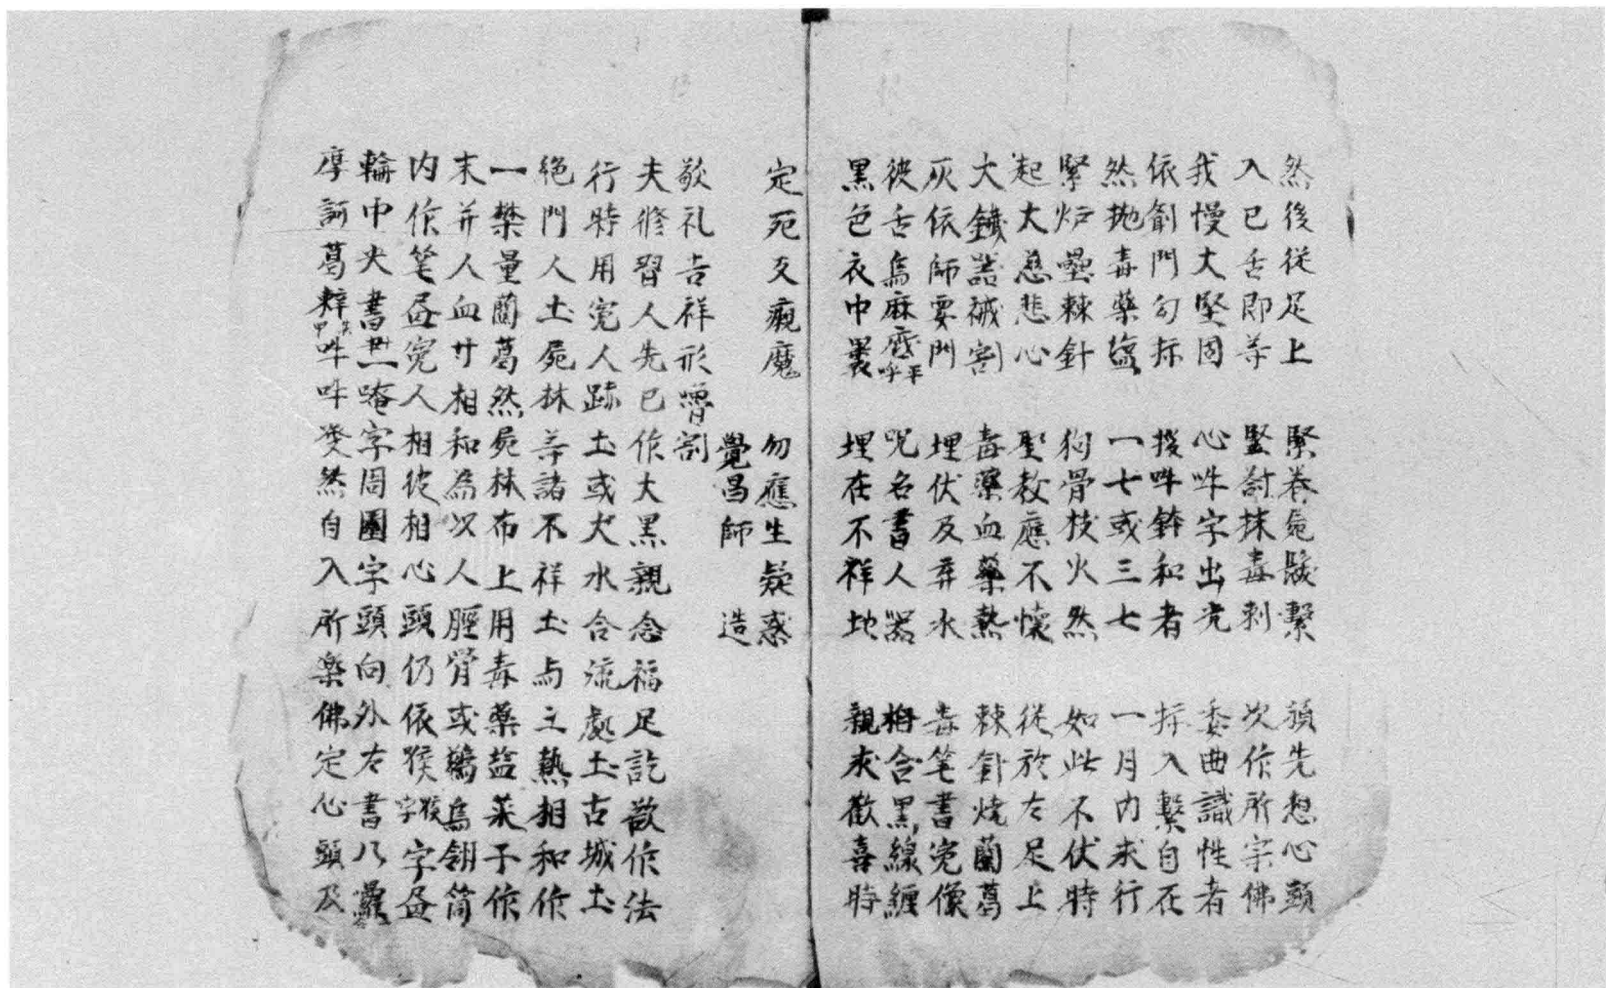 然後從足上　緊卷髮繫　預先想心頭
入已舌即等　堅封抹毒刺　次作所宗佛
我慢大堅固　心吽字出光　委曲識性者
依劊門勾捺　拨吽鉢和者　捺入繫自在
然抛毒藥塩　一七或三七　一月内求行
緊炉壘棘針　狗骨枝火然　如此不伏時
起大慈悲心　聖教應不懷　從於左足上
大鐵器械割　毒藥血藥熱　棘針燒蘭葛
灰依師要門　埋伏及弃水　毒笔書寃像
彼舌烏麻麿平呼　咒名書人器　相合黑線纏
黑色衣中裹　埋在不祥地　親求歡喜時
定死又覷魔　勿應生疑惑
覺昌師　造
敬礼吉祥形噜割
夫修習人先已作大黑親念福足訖欲作法
行時用寃人跡土或犬水合流處土古城土
絕門人土屍林等諸不祥土与立熱相和作
一檠量蘭葛然屍林布上用毒藥盐菜子作
末并人血廿相和為以人脛骨或鵶烏翎筒
内作笔畫寃人相彼相心頭仍依猴猴字字畫
輪中央書唵字周圍字頭向外左書八囉
摩訶葛辢吽吽癹然自入所樂佛定心頭及